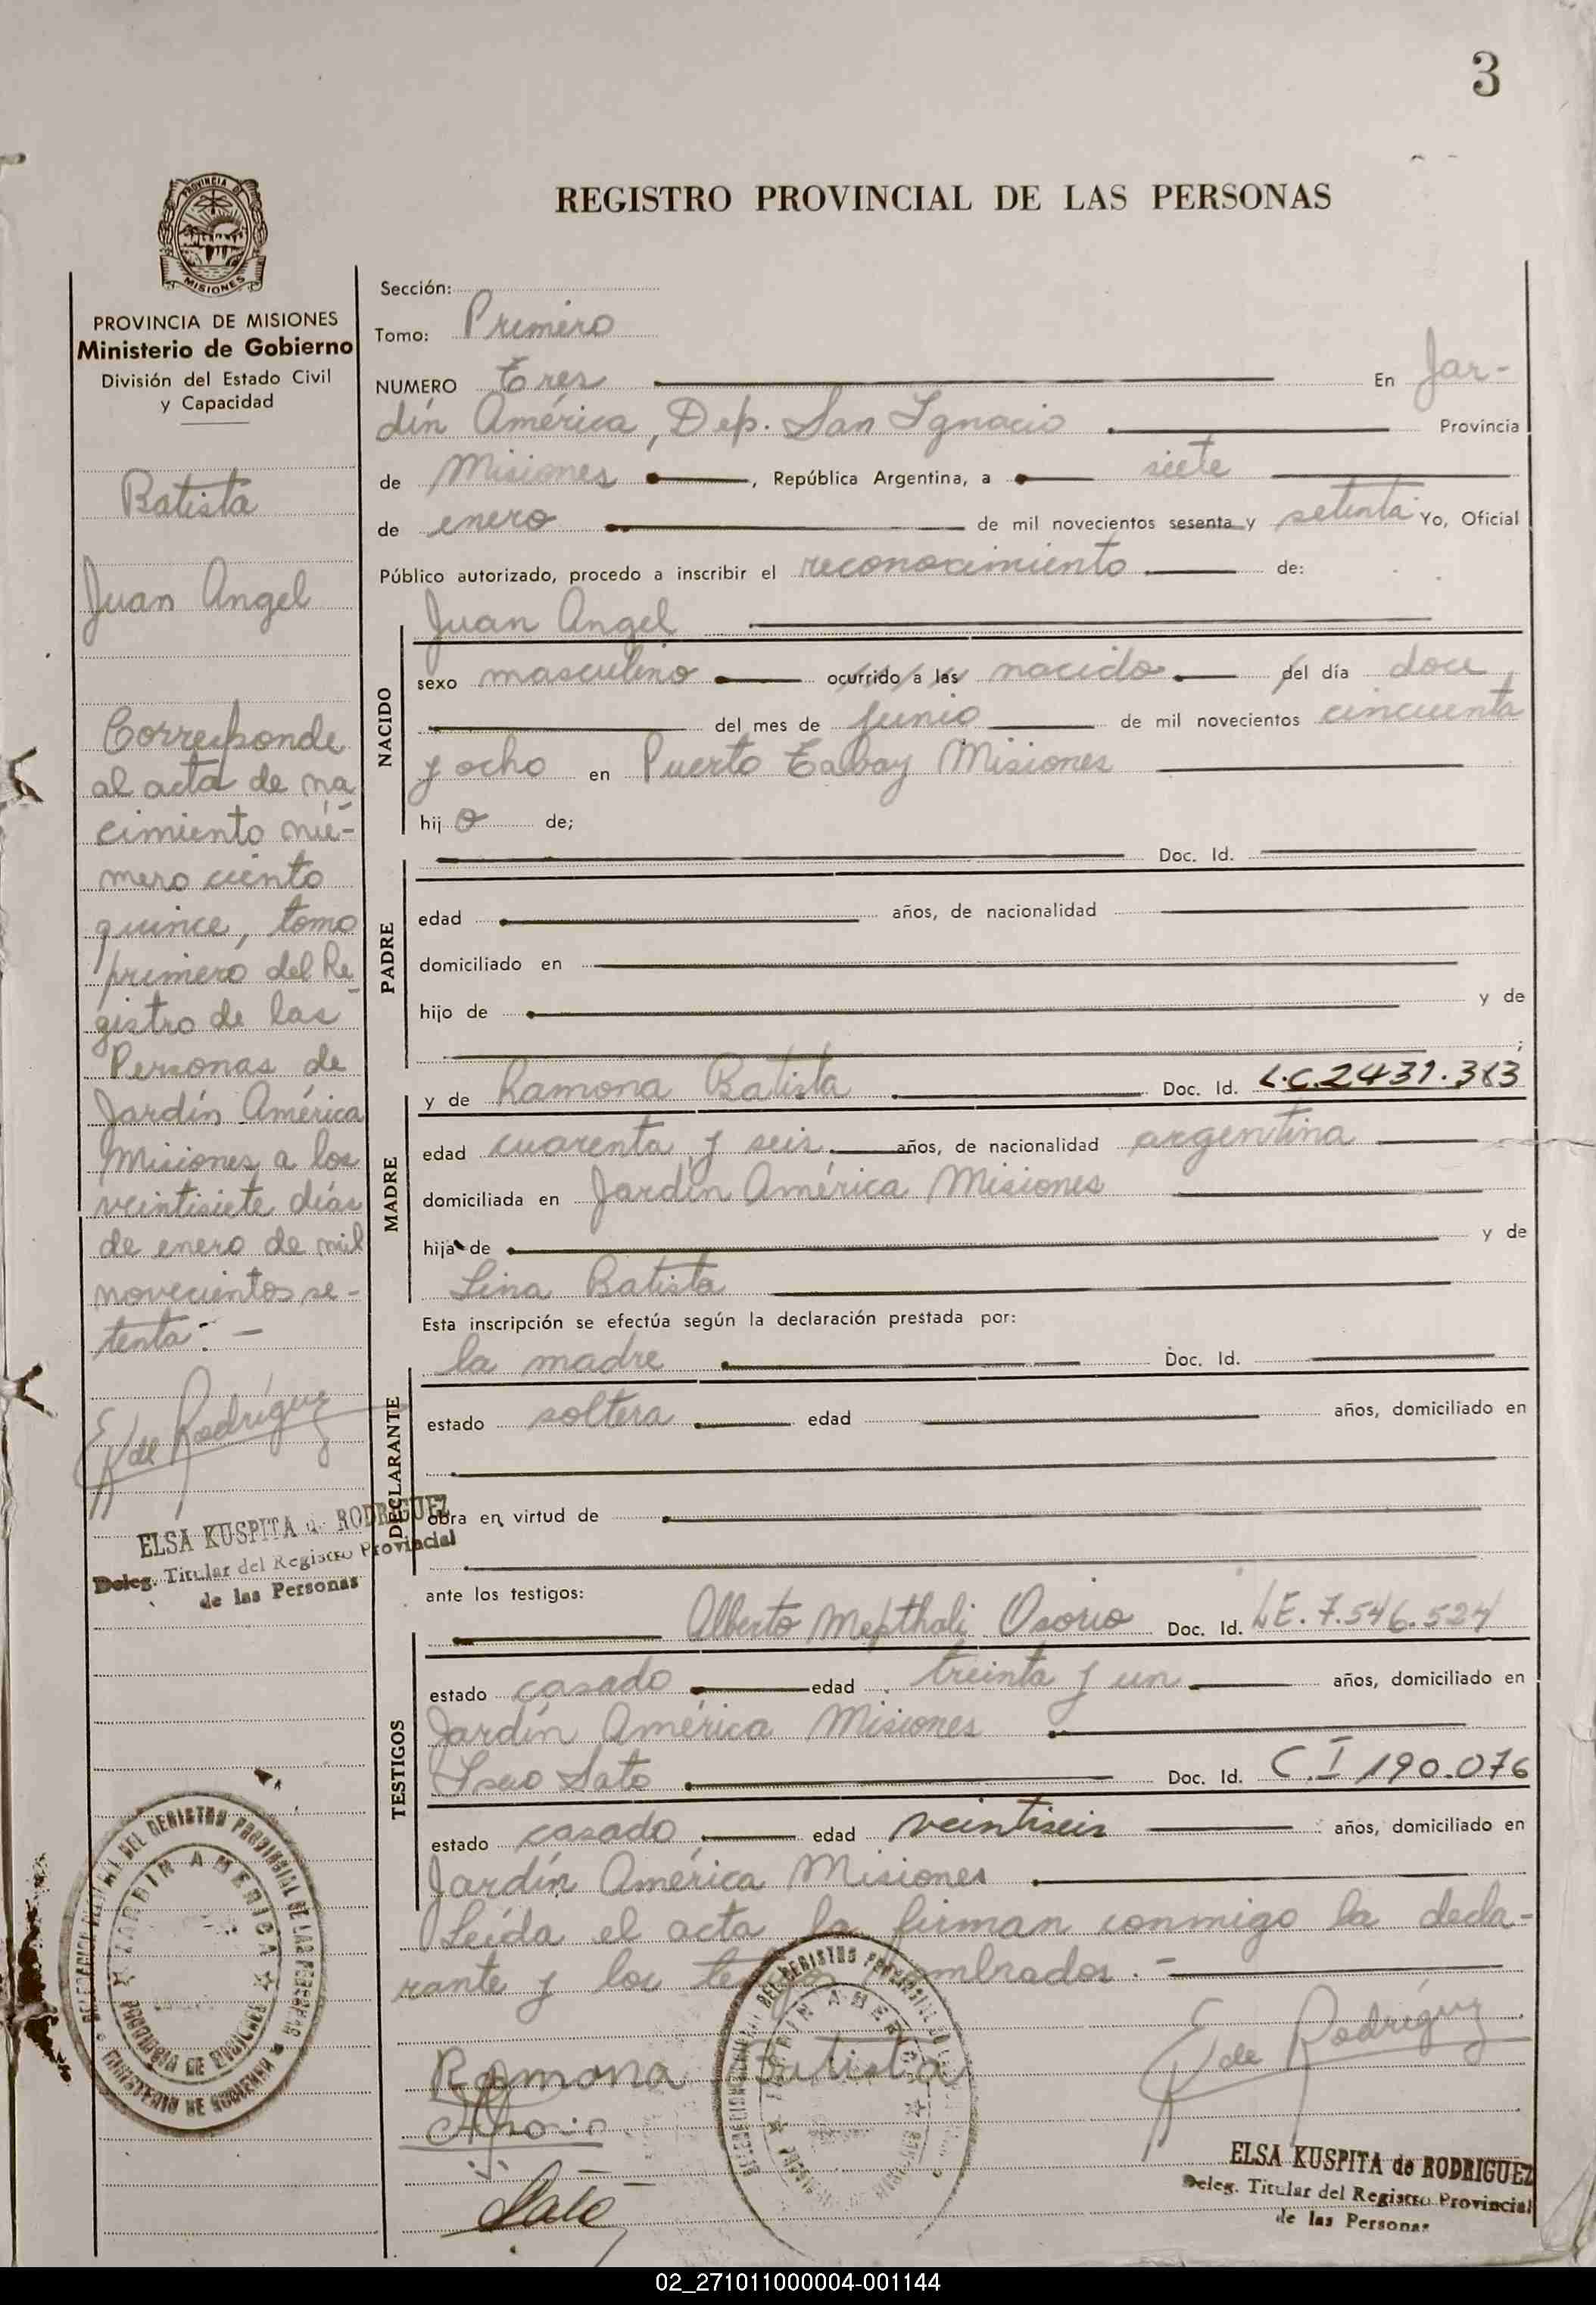 3
REGISTRO PROVINCIAL DE LAS PERSONAS
PROVINCIA DE MISIONES
PROVINCIA DE MISIONES
Ministerio de Gobierno
División del Estado Civil
y Capacidad
Batista
Juan Angel
Corresponde
al acta de na
cimiento nú-
mero ciento
quince, tomo
primero del Re
gistro de las
Personas de
Jardín América
Misiones a los
veintisiete días
de enero de mil
novecientos se-
tenta. —
E K de Rodríguez
ELSA KUSPITA de RODRIGUEZ
Deleg. Titular del Registro Provincial
de las Personas
DEL REGISTRO PROVINCIAL DE LAS PERSONAS
JARDIN AMERICA
PROVINCIA DE MISIONES
MINISTERIO DE GOBIERNO
Sección:
Tomo: Primero
NUMERO Tres En Jar-
dín América, Dep. San Ignacio Provincia
de Misiones, República Argentina, a siete
de enero de mil novecientos sesenta y setenta Yo, Oficial
Público autorizado, procedo a inscribir el reconocimiento de:
Juan Angel
NACIDO
sexo masculino ocurrido a las nacido del día doce
del mes de junio de mil novecientos cincuenta
y ocho en Puerto Tabay Misiones
hijo de;
Doc. Id.
PADRE
edad años, de nacionalidad
domiciliado en
hijo de y de
;
y de Ramona Batista Doc. Id. L.C. 2431.313
MADRE
edad cuarenta y seis años, de nacionalidad argentina
domiciliada en Jardín América Misiones
hija de y de
Lina Batista
Esta inscripción se efectúa según la declaración prestada por:
la madre Doc. Id.
DECLARANTE
estado soltera edad años, domiciliado en
obra en virtud de
ante los testigos:
Alberto Mepthali Osorio Doc. Id. LE. 7.546.524
TESTIGOS
estado casado edad treinta y un años, domiciliado en
Jardín América Misiones
Sato Doc. Id. C.I 190.076
estado casado edad veintiseis años, domiciliado en
Jardín América Misiones
Leída el acta la firman conmigo la decla-
rante y los nombrados. —
Ramona Batista
E K de Rodríguez
Sato
ELSA KUSPITA de RODRIGUEZ
Deleg. Titular del Registro Provincial
de las Personas
02_271011000004-001144